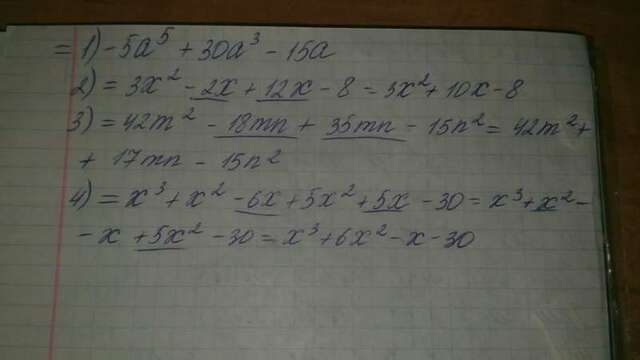 = 1) -5a⁵ + 30a³ - 15a
2) = 3x² - 2x + 12x - 8 = 3x² + 10x - 8
3) = 42m² - 18mn + 35mn - 15n² = 42m² +
+ 17mn - 15n²
4) = x³ + x² - 6x + 5x² + 5x - 30 = x³ + x² -
- x + 5x² - 30 = x³ + 6x² - x - 30